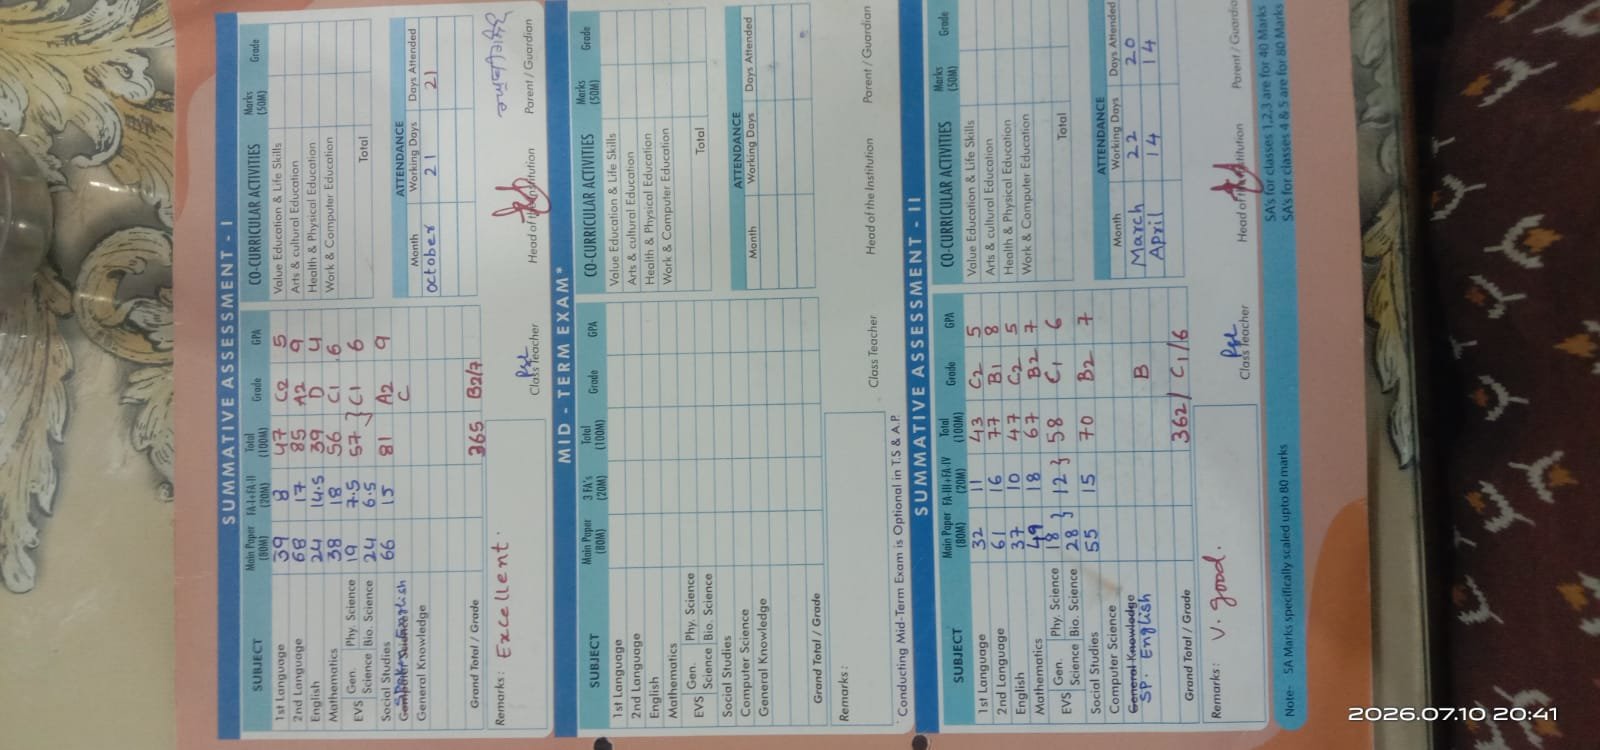 SUMMATIVE ASSESSMENT - I
SUBJECT Main Paper (80M) FA-I+FA-II (20M) Total (100M) Grade GPA
1st Language 39 8 47 C2 5
2nd Language 68 17 85 A2 9
English 24 14.5 39 D 4
Mathematics 38 18 56 C1 6
EVS Gen. Science Phy. Science 19 7.5 57 } C1 6
Bio. Science 24 6.5
Social Studies 66 15 81 A2 9
Computer Science English C
General Knowledge
Grand Total / Grade 365 B2/7
CO-CURRICULAR ACTIVITIES Marks (50M) Grade
Value Education & Life Skills
Arts & cultural Education
Health & Physical Education
Work & Computer Education
Total
ATTENDANCE
Month Working Days Days Attended
October 21 21
Remarks: Excellent.
Class Teacher Head of the Institution Parent / Guardian
MID - TERM EXAM*
SUBJECT Main Paper (80M) 3 FA's (20M) Total (100M) Grade GPA
1st Language
2nd Language
English
Mathematics
EVS Gen. Science Phy. Science
Bio. Science
Social Studies
Computer Science
General Knowledge
Grand Total / Grade
CO-CURRICULAR ACTIVITIES Marks (50M) Grade
Value Education & Life Skills
Arts & cultural Education
Health & Physical Education
Work & Computer Education
Total
ATTENDANCE
Month Working Days Days Attended
Remarks:
Class Teacher Head of the Institution Parent / Guardian
* Conducting Mid-Term Exam is Optional in T.S & A.P.
SUMMATIVE ASSESSMENT - II
SUBJECT Main Paper (80M) FA-III+FA-IV (20M) Total (100M) Grade GPA
1st Language 32 11 43 C2 5
2nd Language 61 16 77 B1 8
English 37 10 47 C2 5
Mathematics 49 18 67 B2 7
EVS Gen. Science Phy. Science 18 } 12 } 58 C1 6
Bio. Science 28
Social Studies 55 15 70 B2 7
Computer Science
General Knowledge
SP. English B
Grand Total / Grade 362 / C1/6
CO-CURRICULAR ACTIVITIES Marks (50M) Grade
Value Education & Life Skills
Arts & cultural Education
Health & Physical Education
Work & Computer Education
Total
ATTENDANCE
Month Working Days Days Attended
March 22 20
April 14 14
Remarks: V. good.
Class Teacher Head of the Institution Parent / Guardian
Note:- SA Marks specifically scaled upto 80 marks
SA's for classes 1,2,3 are for 40 Marks
SA's for classes 4 & 5 are for 80 Marks
2026.07.10 20:41